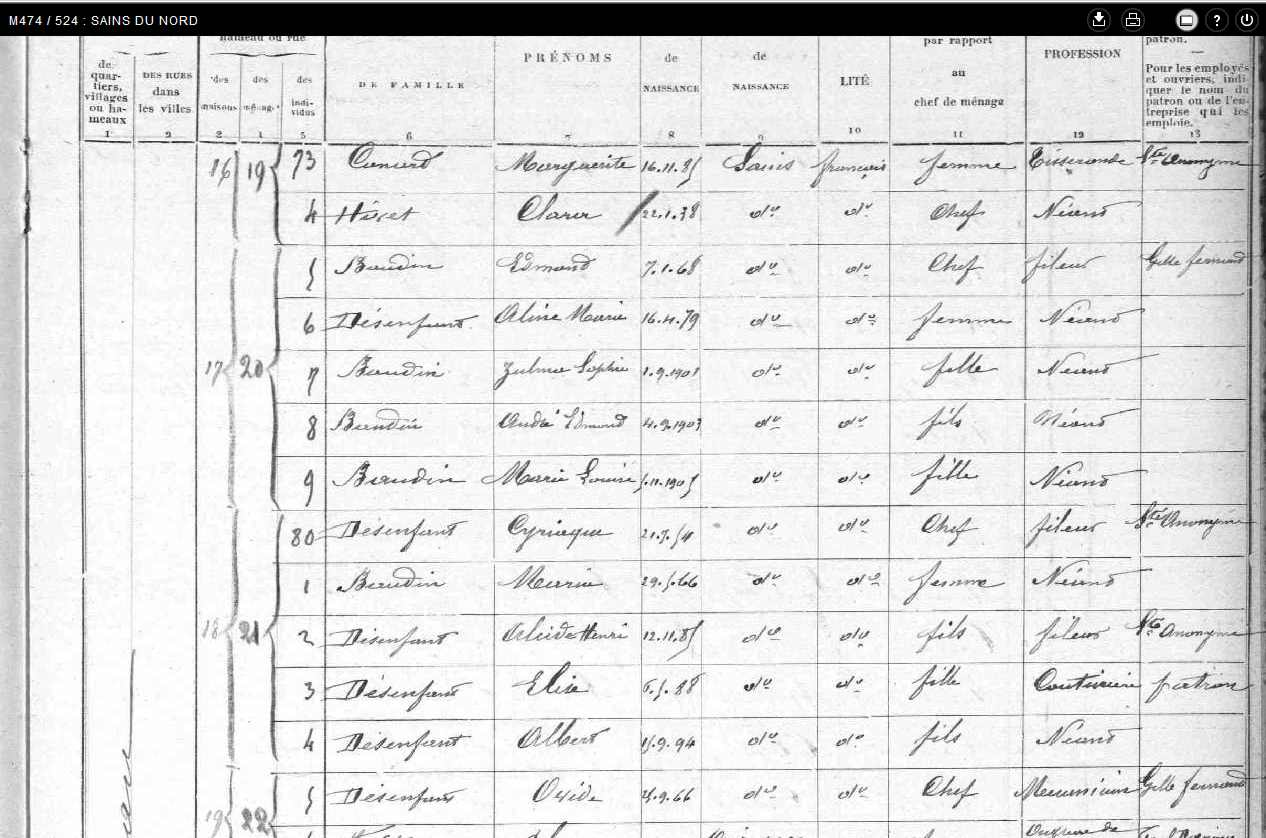 M474 / 524 : SAINS DU NORD
hameau ou rue
de quar- tiers, villages ou ha- meaux DES RUES dans les villes des maisons des ménag. des indi- vidus DE FAMILLE PRÉNOMS de NAISSANCE de NAISSANCE LITÉ par rapport au chef de ménage PROFESSION patron. — Pour les employés et ouvriers, indi- quer le nom du patron ou de l'en- treprise qui les emploie.
1 2 2 4 5 6 7 8 9 10 11 12 13
16 19 73 Marguerite 16.11.85 Sains français femme Tisserande Sté Anonyme
4 22.1.38 do do Chef Néant
5 Baudin Edmond 7.1.68 do do Chef fileur Gille fernand
6 Désenfant Aline Marie 16.4.79 do do femme Néant
17 20 7 Baudin Zulma Sophie 1.9.1901 do do fille Néant
8 Baudin André Edmond 4.9.1903 do do fils Néant
9 Baudin Marie Louise 5.11.1905 do do fille Néant
80 Désenfant Cyriaque 21.7.54 do do Chef fileur Sté Anonyme
1 Baudin Maria 29.5.66 do do femme Néant
18 21 2 Désenfant Alcide Henri 12.11.85 do do fils fileur Sté Anonyme
3 Désenfant Elise 6.5.88 do do fille Couturière patron
4 Désenfant Albert 15.9.94 do do fils Néant
19 22 5 Désenfant Ovide 4.9.66 do do Chef Mécanicien Gille fernand